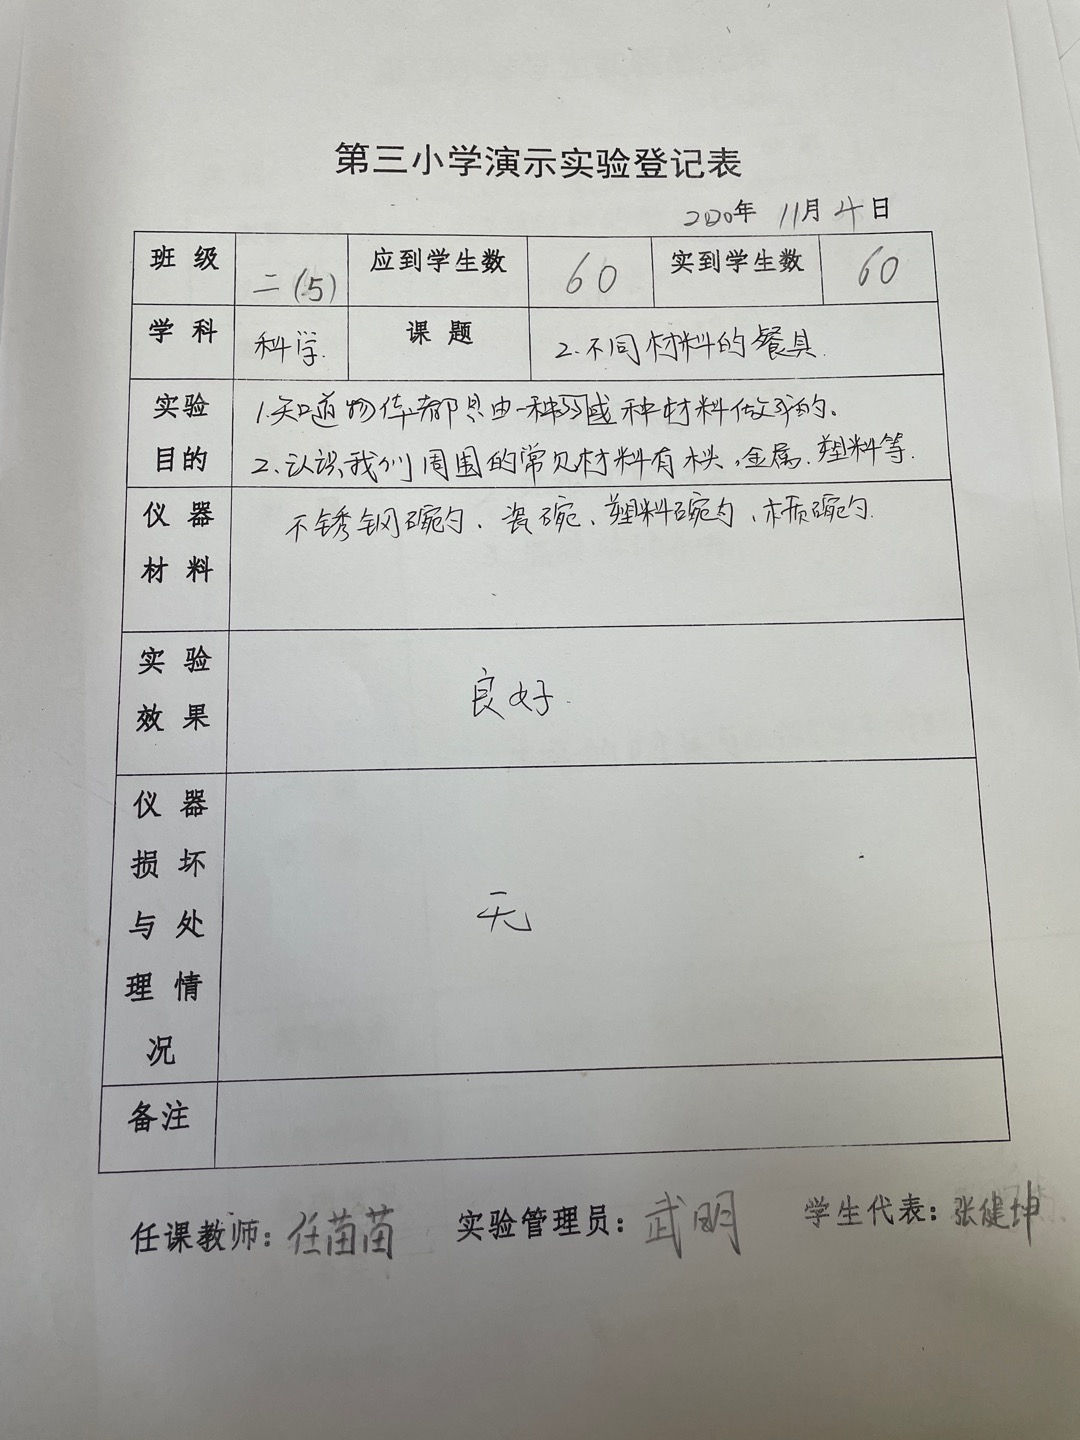 第三小学演示实验登记表
2020年 11月 4日
班级 二(5) 应到学生数 60 实到学生数 60
学科 科学. 课题 2.不同材料的餐具.
实验目的 1.知道物体都是由一种或种材料做成的。
2.认识我们周围的常见材料有木头,金属.塑料等.
仪器材料 不锈钢碗勺、瓷碗、塑料碗勺、木质碗勺.
实验效果 良好.
仪器损坏与处理情况 无
备注
任课教师:任苗苗 实验管理员:武明 学生代表:张健坤